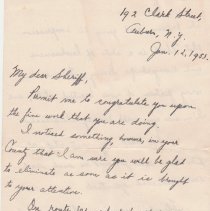 192 Clark Street,
Auburn, N.Y.
Jan. 12, 1935.
My dear Sheriff,
Permit me to congratulate you upon
the fine work that you are doing.
I noticed something, however, in your
County that I am sure you will be glad
to eliminate as soon as it is brought
to your attention.